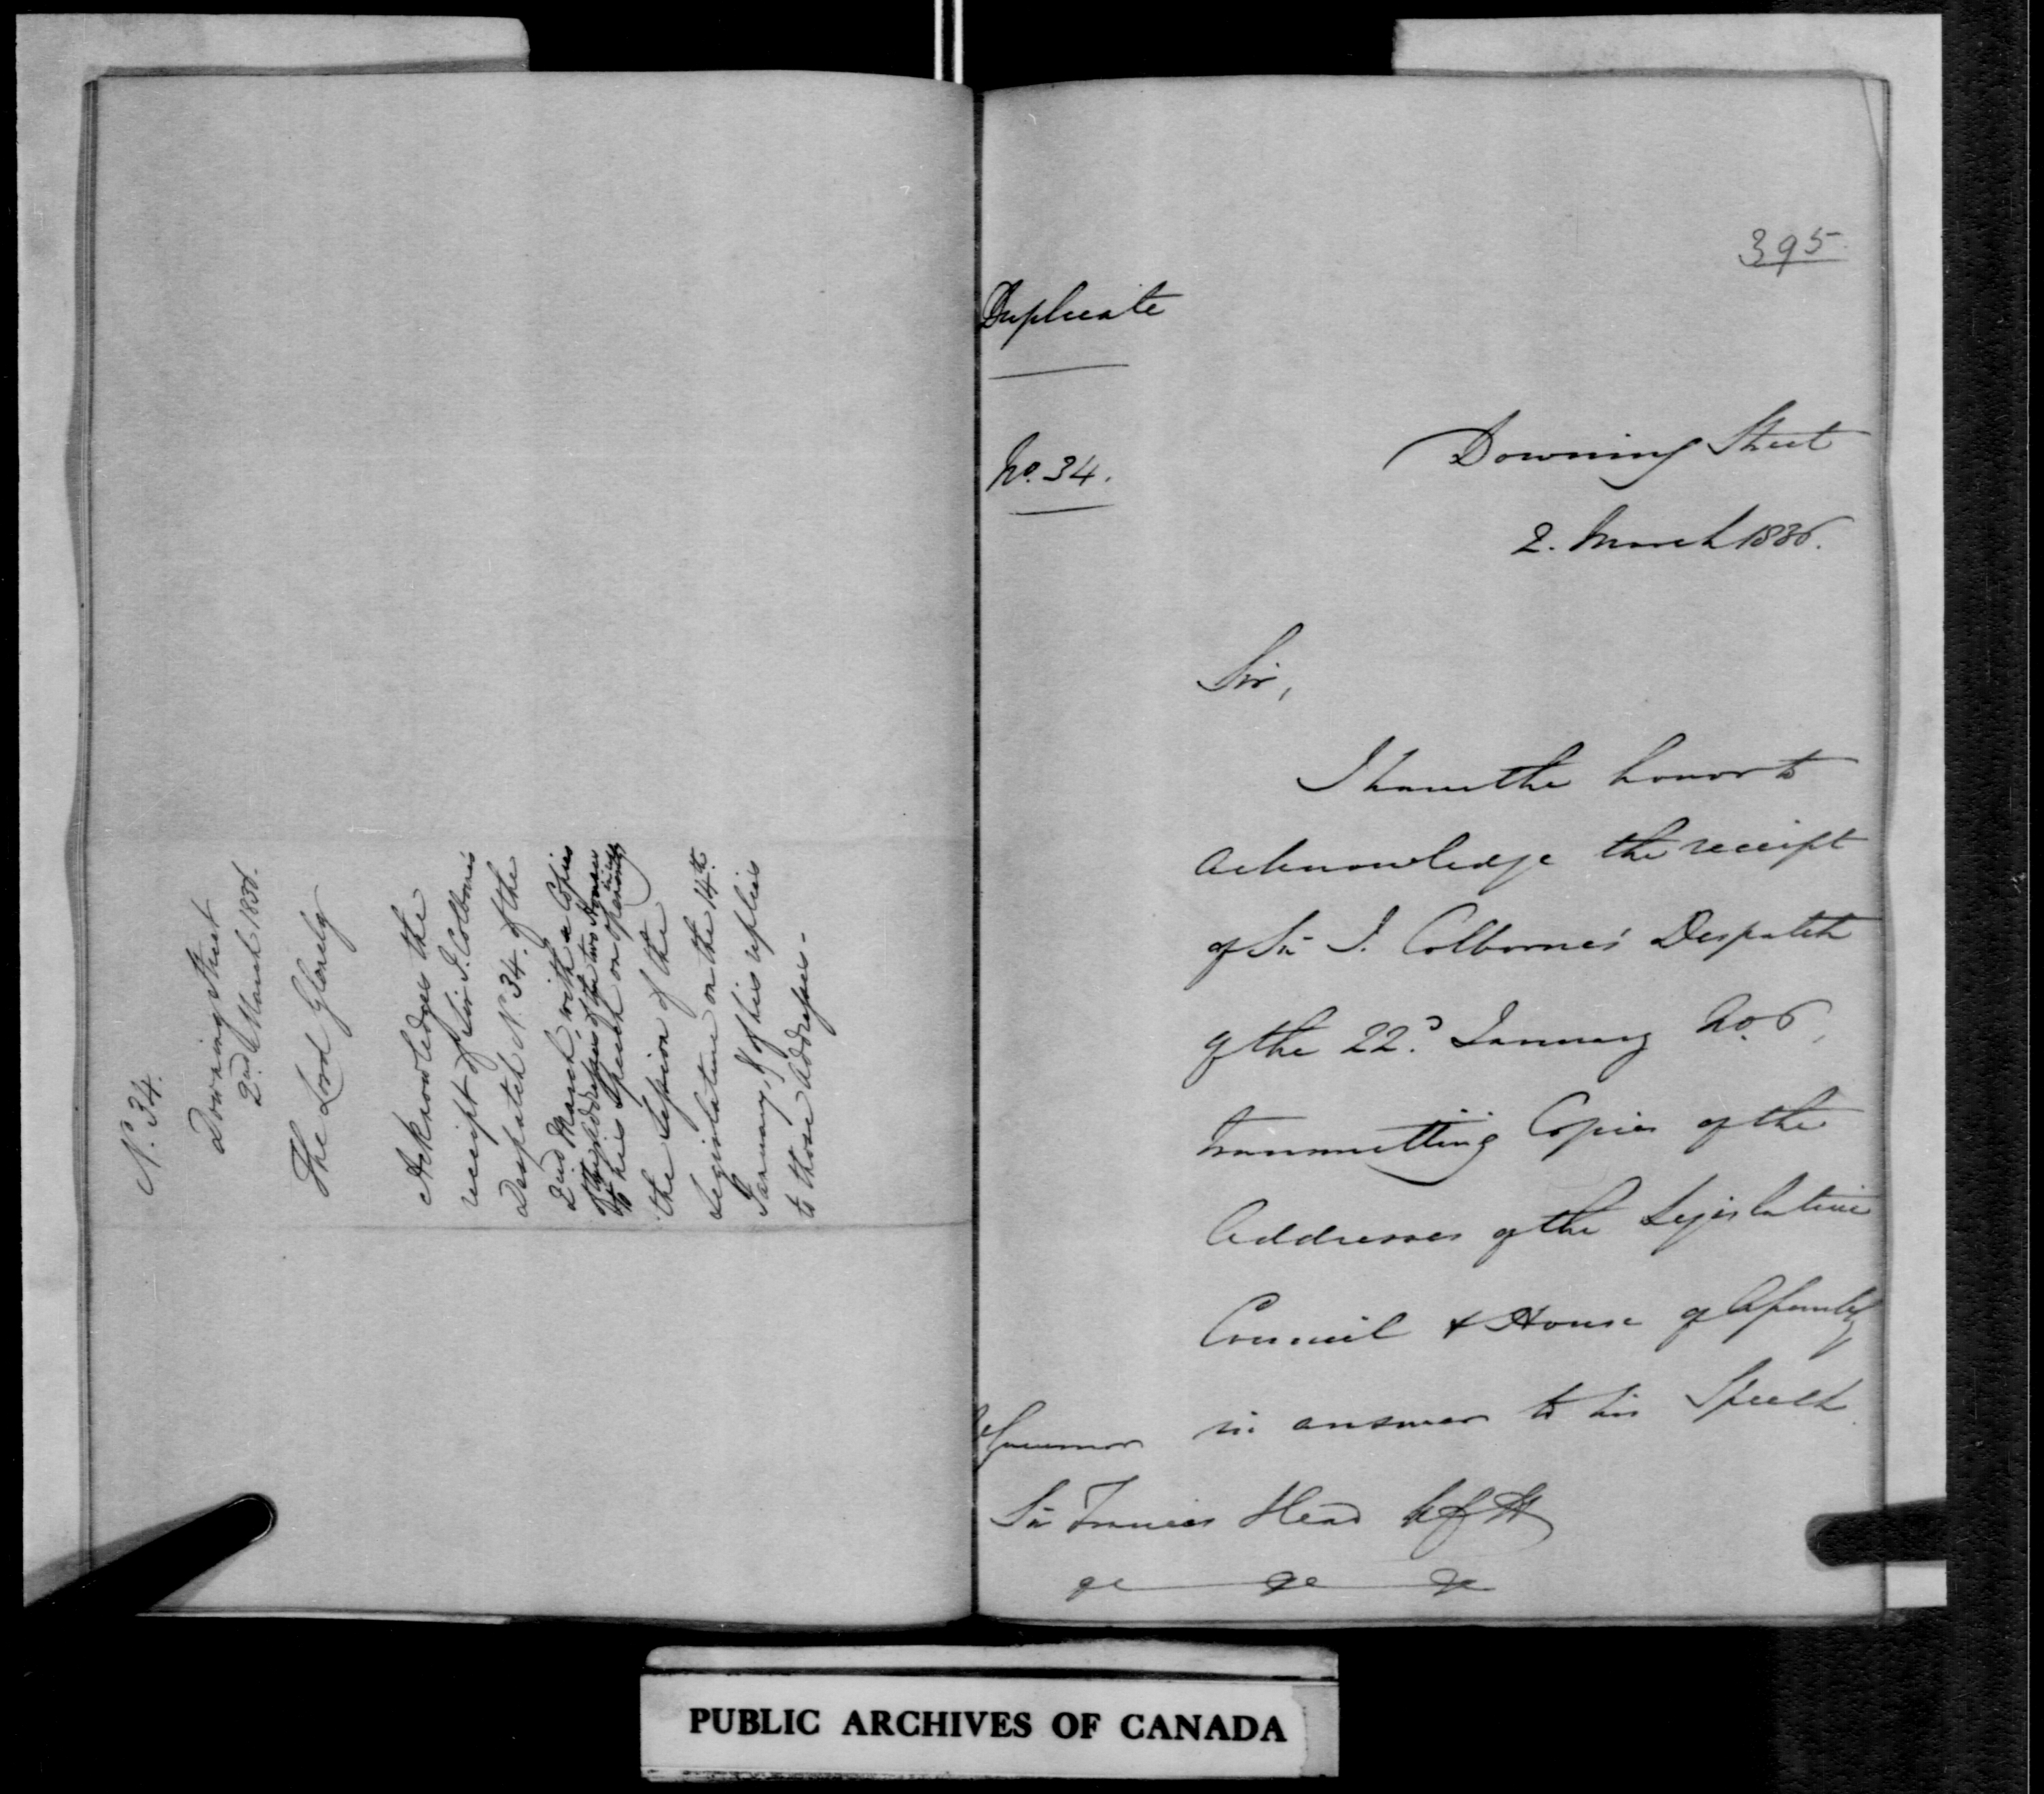 No. 34.
Downing Street
2nd March 1836.
The Lord Glenelg
Acknowledges the
receipt of Sir J. Colborne's
Despatch No. 34. of the
2nd March, with Copies
of the Addresses of the two Houses
to his Speech on opening
the Session of the
Legislature on the 14th
January, & of his replies
to those addresses.
395.
Duplicate
No. 34.
Downing Street
2. March 1836.
Sir,
I have the honor to
acknowledge the receipt
of Sir J. Colborne's Despatch
of the 22d. January No. 6,
transmitting Copies of the
Addresses of the Legislative
Council & House of Assembly
in answer to his Speech
Governor
Sir Francis Head K.C.H.
&c &c &c
PUBLIC ARCHIVES OF CANADA